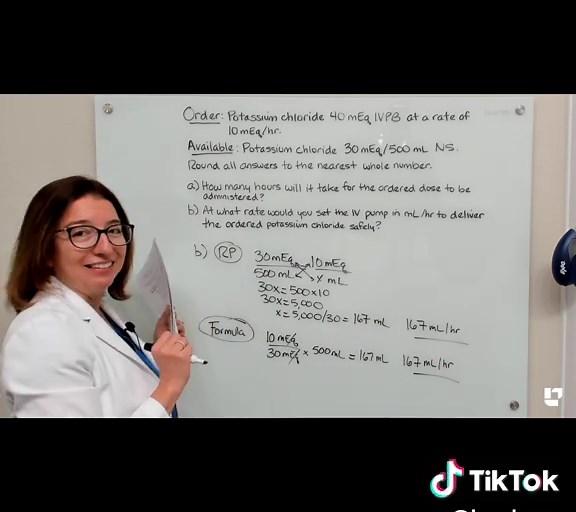 Order: Potassium chloride 40 mEq IVPB at a rate of
10 mEq/hr.
Available: Potassium chloride 30 mEq/500 mL NS.
Round all answers to the nearest whole number.
a) How many hours will it take for the ordered dose to be
admnistered?
b) At what rate would you set the IV pump in mL/hr to deliver
the ordered potassium chloride safely?
b) RP 30 mEq 10 mEq
500 mL x mL
30x = 500 x 10
30x = 5,000
x = 5,000/30 = 167 mL 167 mL/hr
Formula 10 mEq
30 mEq x 500 mL = 167 mL 167 mL/hr
TikTok